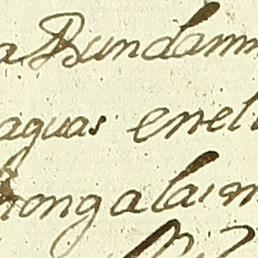 a Bundamm
aguas enel
ponga laim